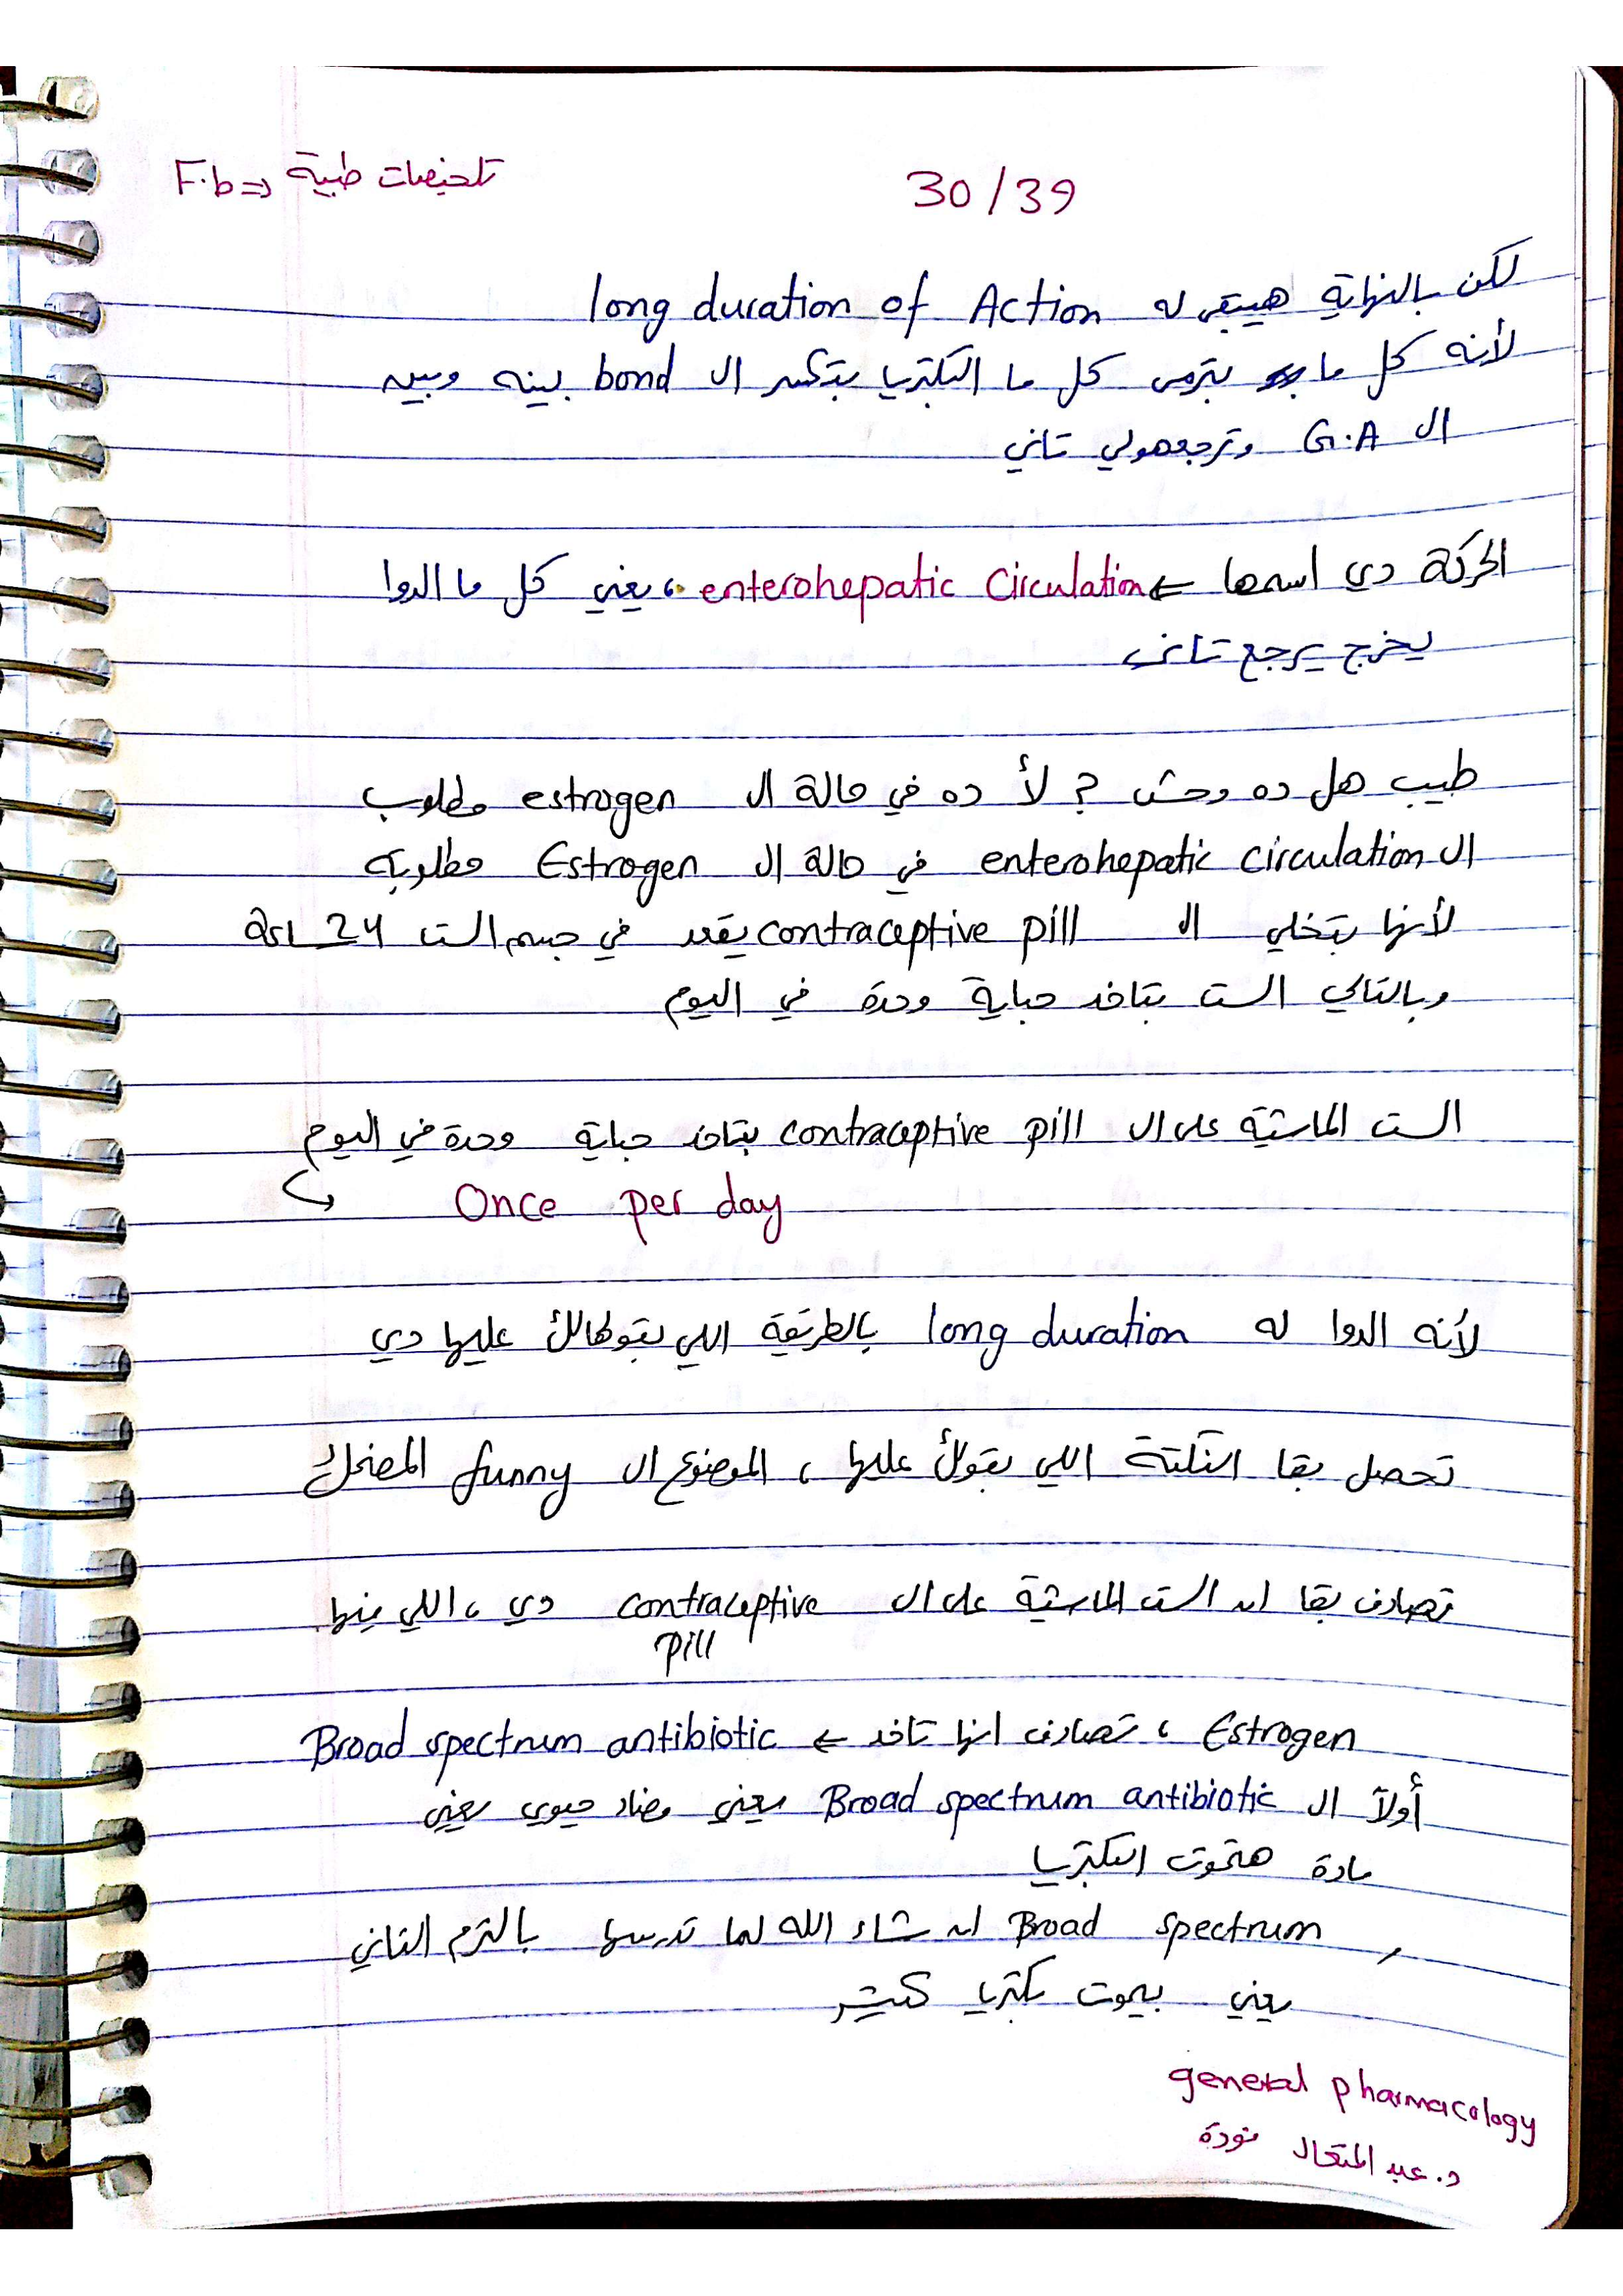 F.b => تلخيصات طبية
30/39
لكن بالنهاية هيبقى له long duration of Action
لأنه كل ما بيترمى كل ما البكتريا بتكسر ال bond بينه وبين
ال G.A وترجعهولي تاني
الحركة دي اسمها ← enterohepatic Circulation، يعني كل ما الدوا
يخرج يرجع تاني
طيب هل ده وحش ? لأ ده في حالة ال estrogen مطلوب
ال enterohepatic circulation في حالة ال Estrogen مطلوبة
لأنها بتخلي ال contraceptive pill يقعد في جسم الست 24 ساعة
وبالتالي الست بتاخد حباية وحدة في اليوم
الست الماشية على ال contraceptive pill بتاخد حباية وحدة في اليوم
↪ Once per day
لأنه الدوا له long duration بالطريقة اللي بقولهالك عليها دي
تحصل بقا النكتة اللي بقولك عليها ، الموضوع ال funny المضحك
تصادف بقا ان الست الماشية على ال contraceptive دي ، اللي فيها
pill
Estrogen ، تصادف انها تاخد ← Broad spectrum antibiotic
أولاً ال Broad spectrum antibiotic يعني مضاد حيوي يعني
مادة هتموت البكتريا
, Broad spectrum ان شاء الله لما تدرسها بالترم التاني
يعني بيموت بكتريا كتير
general pharmacology
د. عبد المتعال فودة